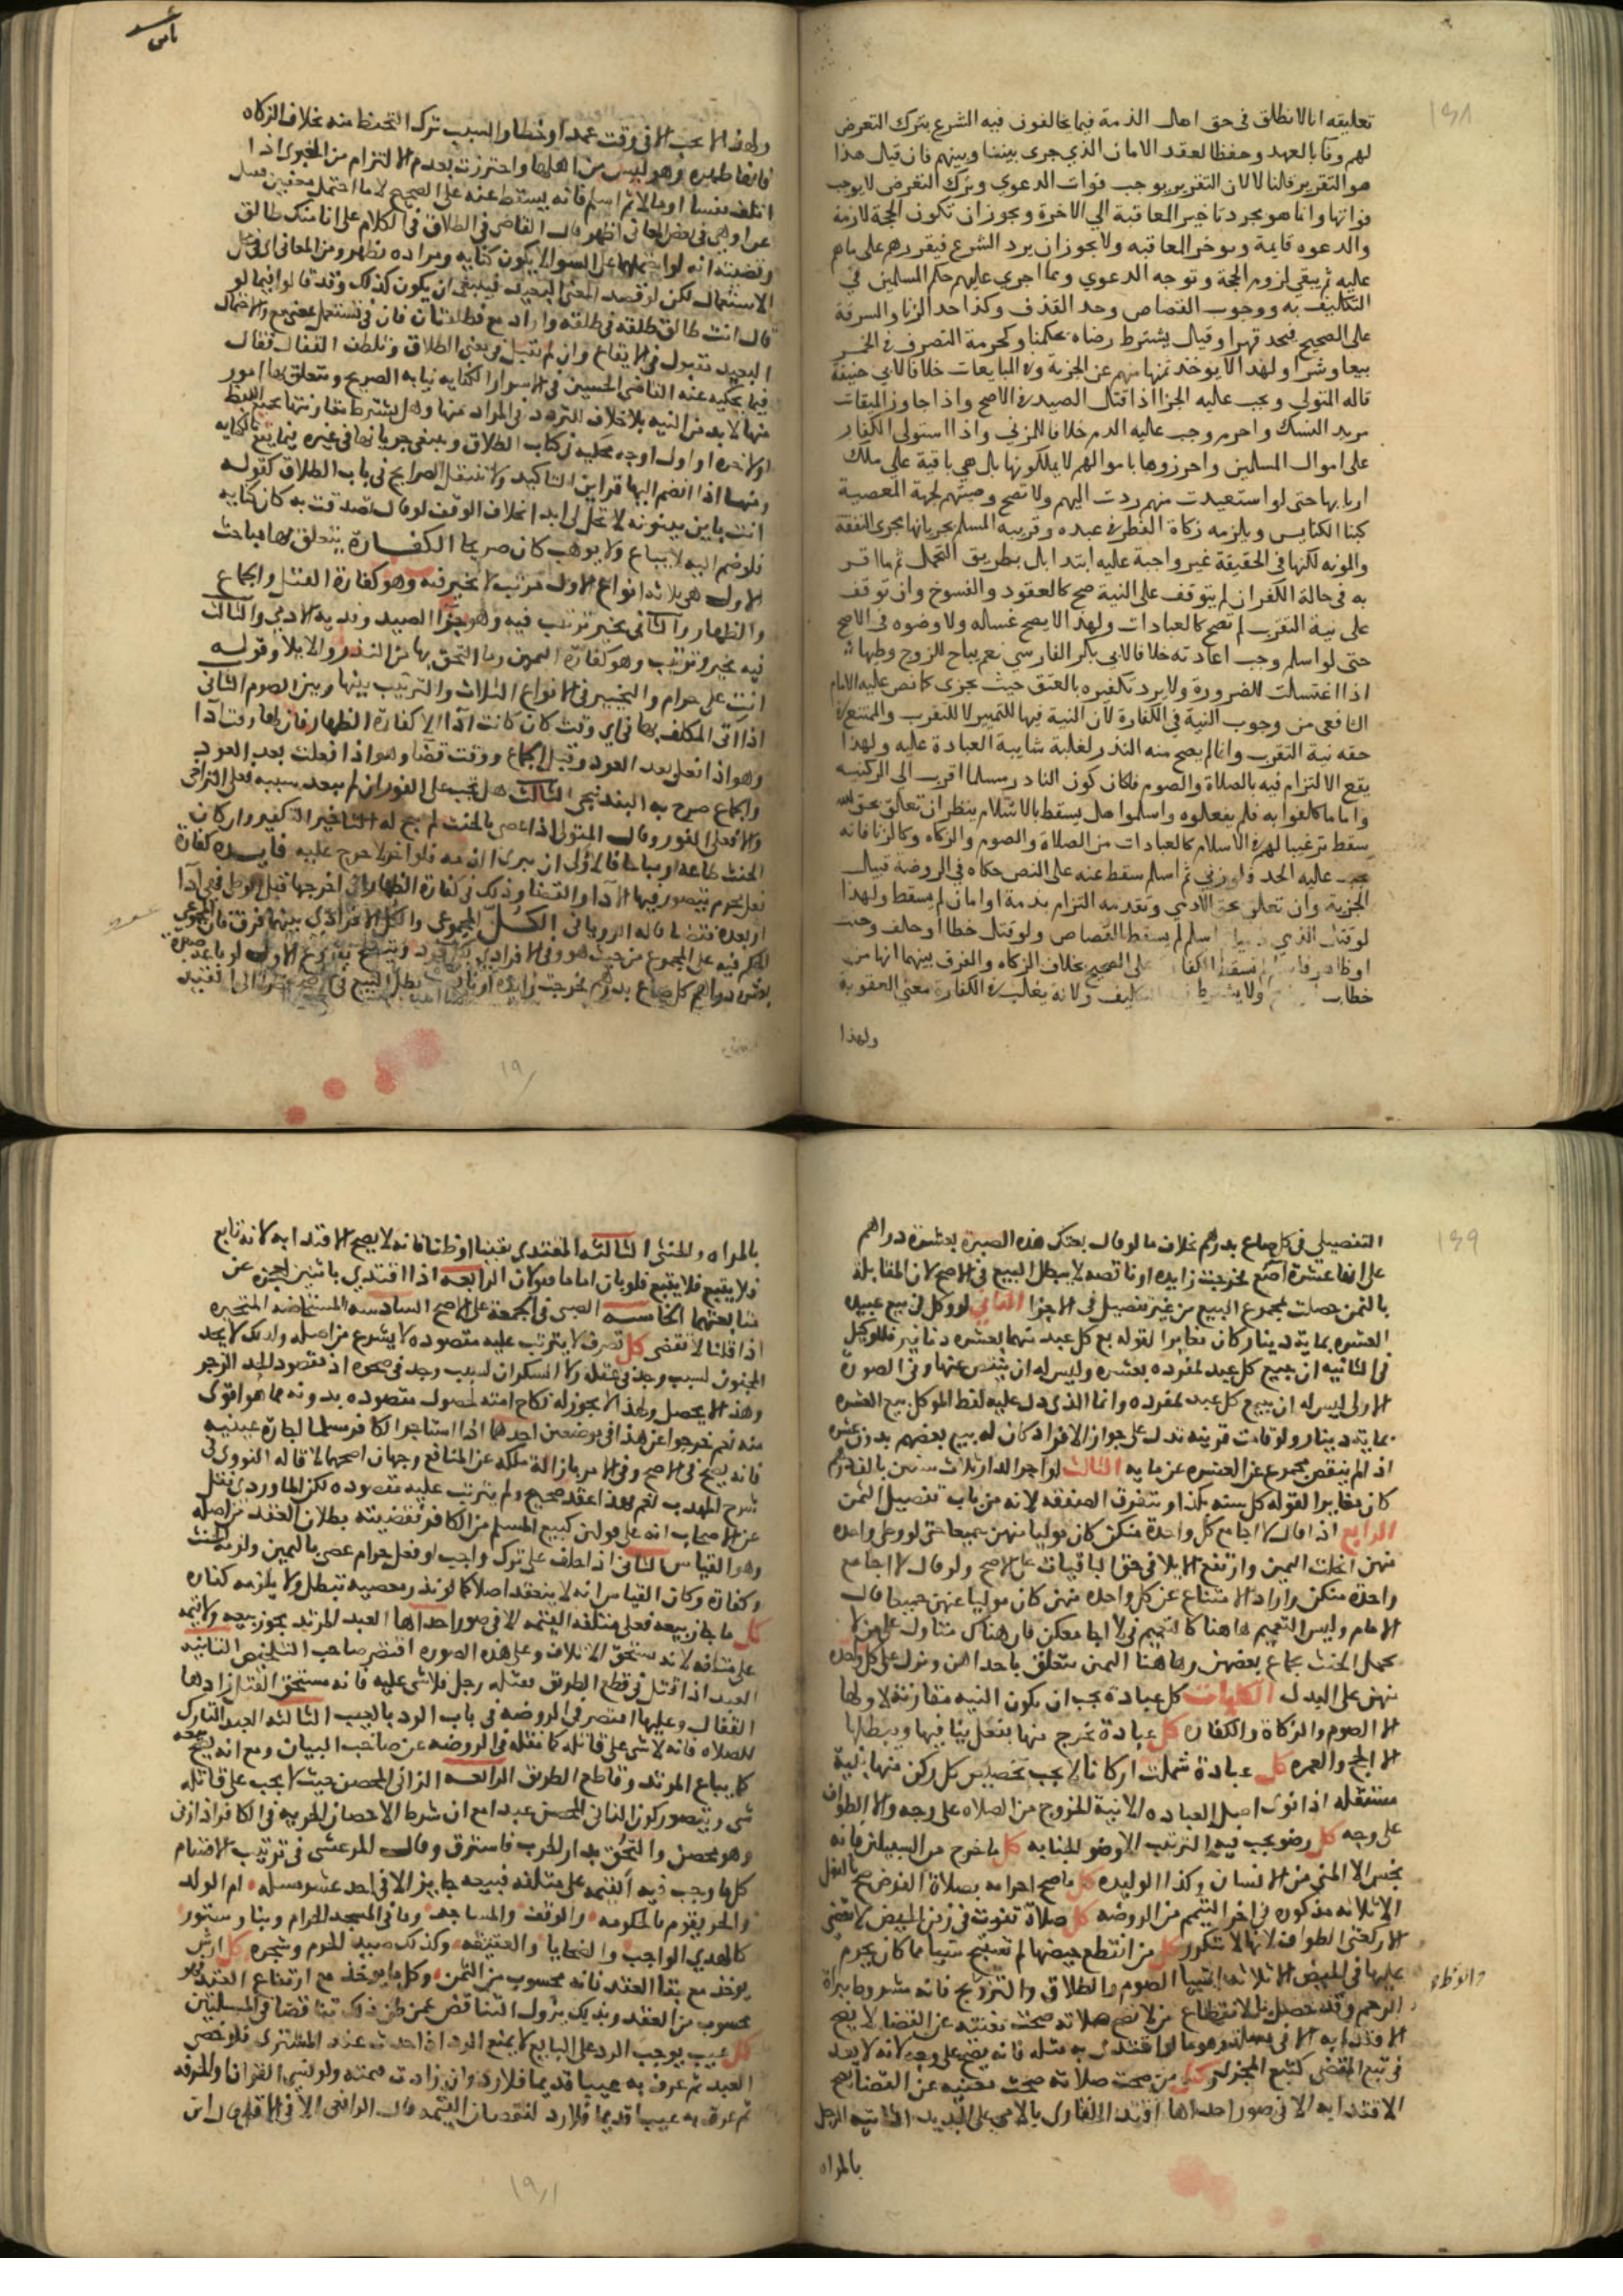 تعليقه انا لا نطلق في حق اهل الذمة فيما يخالفون فيه الشرع بترك التعرض
لهم وفا بالعهد وحفظا لعقد الامان الذي جرى بيننا وبينهم فان قيل هذا
هو التقرير قلنا لا لان التقرير يوجب فوات الدعوي وترك التعرض لا يوجب
فواتها وانما هو مجرد تاخير المعاقبة الي الاخرة ويجوز ان تكون الحجة لازمة
والدعوه قايمة وتوخر المعاقبه ولا يجوز ان يرد الشرع فيقررهم على ما هم
عليه ثم يبقي لزوم الحجة وتوجه الدعوي ومما اجري عليهم حكم المسلمين في
التكليف به ووجوب القصاص وحد القذف وكذا حد الزنا والسرقة
على الصحيح فيحد قهرا وقيل يشترط رضاه بحكمنا وكحرمة التصرف في الخمر
بيعا وشرا ولهذا لا يوخذ ثمنها منهم عن الجزية وفي المبايعات خلافا لابي حنيفة
قاله المتولي ويجب عليه الجزا اذا قتل الصيد في الاصح واذا جاوز الميقات
مريد النسك واحرم وجب عليه الدم خلافا للمزني واذا استولي الكفار
على اموال المسلمين واحرزوها باموالهم لا يملكونها بل هي باقية علي ملك
اربابها حتى لو استعيدت منهم ردت اليهم ولا تصح وصيتهم لجهة المعصية
كبنا الكنايس ويلزمه زكاة الفطر في عبده وقريبه المسلم بجريانها مجري النفقة
والمونه لكنها في الحقيقة غير واجبة عليه ابتدا بل بطريق التحمل ثم ما اقر
به في حالة الكفر ان لم يتوقف على النية صح كالعقود والفسوخ وان توقف
على نية التقرب لم تصح كالعبادات ولهذا لا يصح غساله ولا وضوه في الاصح
حتى لو اسلم وجب اعادته خلافا لابي بكر الفارسي نعم يباح للزوج وطيها
اذا اغتسلت للضرورة ولا يرد تكفيره بالعتق حيث يجزى كما نص عليه الامام
الشافعي من وجوب النية في الكفارة لان النية فيها للتمييز لا للتقرب والممتنع في
حقه نية التقرب وانما لم يصح منه النذر لغلبة شايبة العبادة عليه ولهذا
يقع الالتزام فيه بالصلاة والصوم فكان كون الناذر مسلما اقرب الى الركنيه
واما ما كلفوا به فلم يفعلوه واسلموا هل يسقط بالاسلام ينظر ان تعلق بحق الله
سقط ترغيبا لهم في الاسلام كالعبادات من الصلاة والصوم والزكاه وكالزنا فانه
يجب عليه الحد فلو زني ثم اسلم سقط عنه على النص حكاه في الروضة قبيل
الجزية وان تعلق بحق الادمي وتقدمه التزام بذمة او امان لم يسقط ولهذا
لو قتل الذمي ذميا ثم اسلم لم يسقط القصاص ولو قتل خطا او حلف وحنث
او ظاهر فاسلم لم تسقط الكفارة على الصحيح بخلاف الزكاه والفرق بينهما انها من
خطاب ولا يشترط فيه التكليف ولانه يغلب في الكفارة معني العقوبة
ولهذا
ولهذا لا يجب الا في وقت عمدا وخطا والسبب ترك التحفظ منه بخلاف الزكاه
فانها طهره وهو ليس من اهلها واحترزت بعدم الالتزام من الحربي اذا
اتلف نفسا او مالا ثم اسلم فانه يسقط عنه على الصحيح
قال القاضي في الطلاق في الكلام على انا منك طالق
الاستعمال لكن لو قصد المعنى البعيد فينبغي ان يكون كذلك وقد قالوا فيما لو
قال انت طالق طلقة في طلقه واراد مع فطلقتان فان في تستعمل بمعنى مع
فيما يحكيه عنه القاضي الحسين في الاسرار الكنايه نيابه الصريح ويتعلق بها امور
منها لا بد من النيه بلا خلاف
او لاخره او اوله اوجه محكيه في كتاب الطلاق
ومنها اذا انضم اليها قراين التاكيد ولا تنتقل الصرايح في باب الطلاق كقوله
انت باين بينونه لا تحل لي ابدا بخلاف الوقف لو قال تصدقت به كان كنايه
فلو ضم اليه لا يباع ولا يوهب كان صريحا الكفارة يتعلق بها مباحث
الاول هي ثلاثه انواع الاول مرتب لا تخير فيه وهو كفارة القتل والجماع
والظهار والثاني تخير لا ترتيب فيه وهو جزا الصيد وفدية الاذي والثالث
فيه تخير وترتيب وهو كفارة اليمين وما التحق بها من النذر والايلا وقوله
انت على حرام والتخيير في الانواع الثلاث والترتيب بينها وبين الصوم الثاني
اذا اتى المكلف بها في اي وقت كان كانت ادا الا كفارة الظهار فان لها وقت ادا
وهو اذا فعلت بعد العود وقبل الجماع ووقت قضا وهو اذا فعلت بعد العود
والجماع صرح به البندنيجى الثالث هل تجب على الفور ان لم يعد بسببه فعلى التراخي
والا فعلى الفور وقال المتولي اذا عصي بالحنث لم يبح له التاخير التكفير وان كان
الحنث طاعه او مباحا فالاولى ان يبرى الذمه فلو اخر لا حرج عليه فايده كفارة
فعل محرم يتصور فيها الادا والقضا وذلك في كفارة الظهار ان اخرجها قبل الوطي فهي ادا
او بعده فقضا قاله الروياني الكل المجموعي والكل الافرادي بينهما فرق فان المجموعي
الحكم فيه على المجموع من حيث هو وفي الافرادي
بعشره دراهم كل صاع بدرهم فخرجت زايده
التفصيلي في كل صاع بدرهم بخلاف ما لو قال بعتك هذه الصبرة بعشرة دراهم
على انها عشرة اصع فخرجت زايده او ناقصه لا يبطل البيع في الاصح لان المقابلة
بالثمن حصلت بمجموع المبيع من غير تفصيل في الاجزا الثاني لو وكل في بيع عبيده
العشره بماية دينار كان مغايرا لقوله بع كل عبد منهما بعشره دنانير فللوكيل
في الثانيه ان يبيع كل عبد بمفرده بعشره وليس له ان ينقص عنها وفي الصورة
الاولى ليس له ان يبيع كل عبد بمفرده وانما الذي دل عليه لفظ الموكل بيع العشره
بماية دينار ولو قامت قرينه تدل على جواز الافراد كان له بيع بعضهم بدون عشره
اذ لم ينقص مجموع عن العشره عن مايه الثالث لو اجر الدار ثلاث سنين بالف درهم
كان مغايرا لقوله كل سنه بكذا وتتفرق الصفقه لانه من باب تفصيل الثمن
الرابع اذا قال لا اجامع كل واحدة منكن كان موليا منهن جميعا حتى لو وطي واحده
منهن انحلت اليمين وارتفع الايلا في حق الباقيات على الاصح ولو قال لا اجامع
واحدة منكن واراد الامتناع عن كل واحده منهن كان موليا عنهن جميعا قال
الامام وليس التعميم هاهنا كالتعميم في لا اجامعكن فان هناك
يحصل الحنث بجماع بعضهن وهاهنا اليمين متعلق باحداهن ونزل على كل واحده
منهن على البدل الكليات كل عبادة يجب ان يكون النيه مقارنة لاولها
الا الصوم والزكاة والكفاره كل عبادة يخرج منها بفعل ينافيها ويبطلها
الا الحج والعمره كل عبادة شملت اركانا لا يجب تخصيص كل ركن منها بنية
مستقله اذا نوى اصل العباده الا نية الخروج من الصلاه على وجه والا الطواف
على وجه كل وضو يجب فيه الترتيب الا وضو الجنابه كل ما خرج من السبيلين فانه
نجس الا المني من الانسان وكذا الوليده كل ما صح احرامه بصلاة الفرض صح بالنفل
الا ثلاثه مذكوره في اخر التيمم من الروضه كل صلاة تفوت في زمن الحيض لا تقضى
الا ركعتي الطواف لانها لا تتكرر كل من انقطع حيضها لم تستبح شيا مما كان يحرم
عليها في الحيض الا ثلاثه اشيا الصوم والطلاق والتزويج فانه مشروط ببراة
الرحم وقد حصل بالانقطاع من لا تصح صلاته صحت مغنيه عن القضا لا يصح
الاقتدا به الا في مساله وهو ما لو اقتدى به مثله فانه يصح على وجه لانه لا يعد
كل من صحت صلاته صحت مغنيه عن القضا يصح
الاقتدا به الا في صور احداها اقتدا القاري بالامي على الجديد الثانيه الرجل
بالمراه
بالمراه والخنثى الثالثه المقتدي يقينا او ظنا فانه لا يصح الاقتدا به لانه تابع
فلا يتبع فلو بان اماما فقولان الرابعه اذا اقتدي باثنين لعجزه عن
متابعتهما الخامسه الصبي في الجمعة على الاصح السادسه المستحاضه المتحيره
اذا قلنا لا تقضى كل تصرف لا يترتب عليه مقصوده لا يشرع من اصله ولذلك لا يحد
المجنون لسبب وجد في عقله ولا السكران لسبب وجد في صحوه اذ مقصود الحد الزجر
وهذا لا يحصل ولهذا لا يجوز له نكاح امته لحصول مقصوده بدونه بما هو اقوى
منه نعم خرجوا عن هذا في موضعين احدهما اذا استاجر الكافر مسلما اجارة عينيه
فانه يصح في الاصح وفي الامر بازالة ملكه عن المنافع وجهان اصحهما لا قاله النووي في
شرح المهذب نعم هذا عقد صحيح ولم يترتب عليه مقصوده لكن الماوردي نقل
عن الاصحاب انه على قولين كبيع المسلم من الكافر فقضيته بطلان العقد من اصله
وهو القياس الثاني اذا حلف على ترك واجب او فعل حرام عصى باليمين ولزمه الحنث
وكفارة وكان القياس انه لا ينعقد اصلا كما لو نذر معصيه تبطل ولا يلزمه كفاره
كل ما جاز بيعه فعلى متلفه القيمه الا في صور احداها العبد المرتد يجوز بيعه ولا قيمه
على متلفه لانه مستحق الاتلاف وعلى هذه الصوره اقتصر صاحب التلخيص الثانيه
العبد اذا قتل في قطع الطريق فقتله رجل فلا شي عليه فانه مستحق القتل زادها
القفال وعليها اقتصر في الروضه في باب الرد بالعيب الثالثه العبد التارك
للصلاه فانه لا شي على قاتله كما نقله في الروضه عن صاحب البيان ومع انه يصح بيعه
كما يباع المرتد وقاطع الطريق الرابعه الزاني المحصن حيث لا يجب على قاتله
شي ويتصور كون الزاني المحصن عبدا مع ان شرط الاحصان الحريه في الكافر اذا زنى
وهو محصن والتحق بدار الحرب فاسترق وقال المرعشي في ترتيب الاقسام
كلما وجب فيه القيمه على متلفه فبيعه جايز الا في احد عشر مسله ام الولد
والحر يقوم بالحكومه والوقف والمساجد وما في المسجد الحرام وبناو ستور
كالهدي الواجب والضحايا والعقيقه وكذلك صيد الحرم وشجره كل ارش
يوخذ مع بقا العقد فانه محسوب من الثمن وكلما يوخذ مع ارتفاع العقد غير
محسوب من العقد وبذلك يزول التناقض عمن ظن ذلك تناقضا في المسلتين
كل عيب يوجب الرد على البايع لا يمنع الرد اذا حدث عند المشتري فلو خصي
العبد ثم عرف به عيبا قديما فلا رد وان زادت قيمته ولو نسي القران والحرفه
ثم عرف به عيبا قديما فلا رد لنقصان القيمه قال الرافعي الا في الاقل